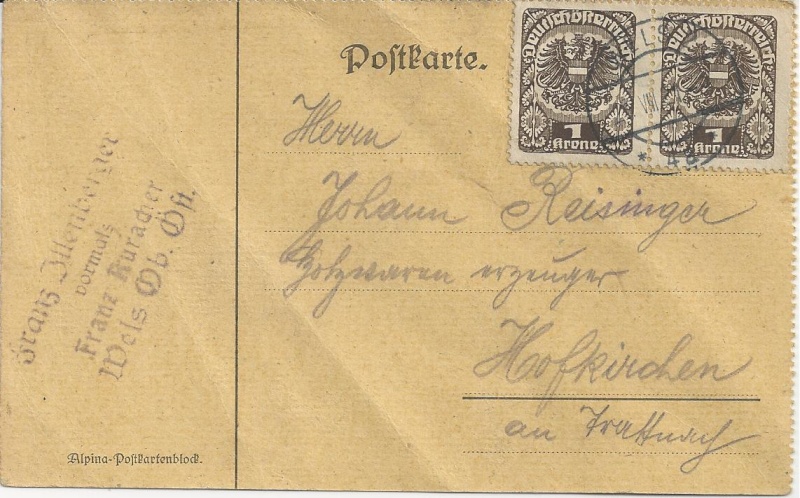 Postkarte.
Deutschösterreich
1
Krone
Deutschösterreich
1
Krone
VIII
Herrn
Johann Reisinger
Holzwaren erzeuger
Hofkirchen
an Trattnach
Franz Illenberger
vormals
Franz Kuracher
Wels Ob. Öst.
Alpina-Postkartenblock.